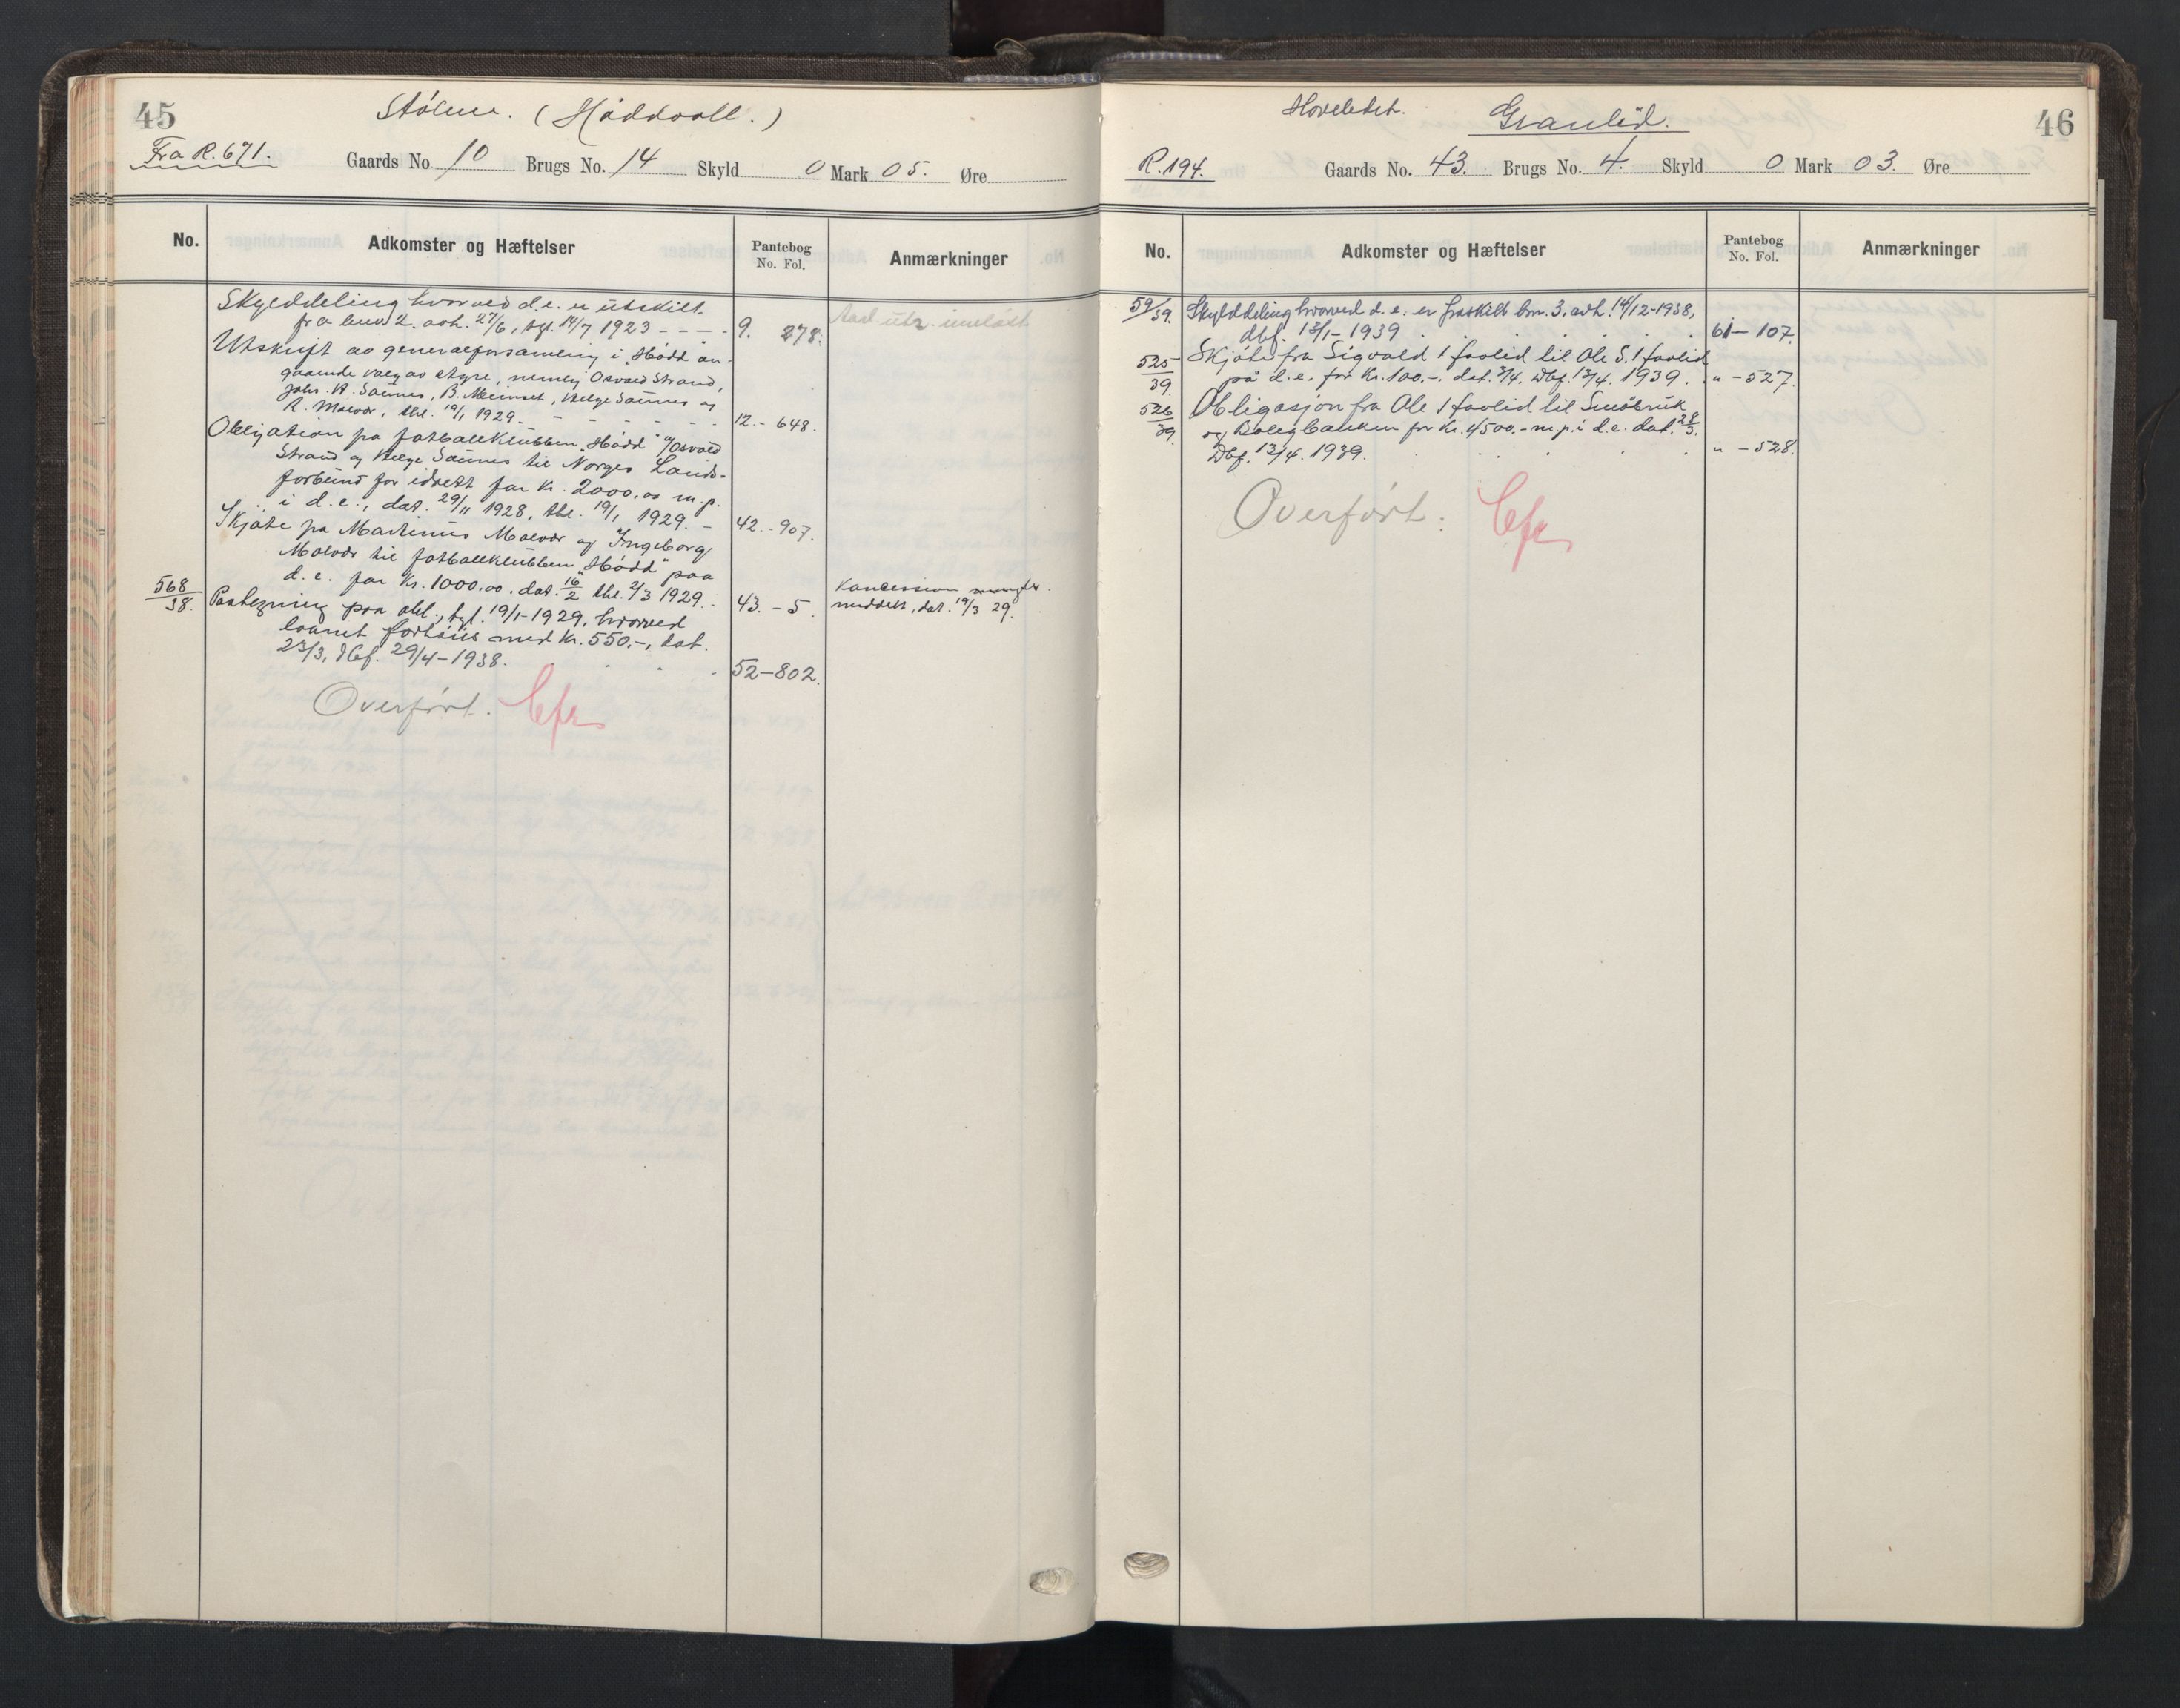 45
Stølene. (Høddvoll.)
Fra R. 671.
Gaards No 10 Brugs No. 14 Skyld 0 Mark 05. Øre
No. Adkomster og Hæftelser Pantebog No. Fol. Anmærkninger
Skylddeling hvorved d.e. er utskilt
fra bnr. 2. avh. 27/6, tgl. 14/7 1923 - - - - 9. 278.
Utskrift av generalforsamling i "Hødd" an-
gaaende valg av styre, nemlig Osvald Strand,
Johs. A. Saunes, B. , Helge Saunes og
R. Molvær, thl. 19/1 1929. - - - - - - 12. - 648.
Obligation fra fotballklubben "Hødd" v/Osvald
Strand og Helge Saunes til Norges Lands-
forbund for idrett for kr. 2000.00 m.p.
i d.e., dat. 29/11 1928, thl. 19/1 1929. - 42. - 907.
Skjøte fra Martinus Molvær og Ingeborg
Molvær til fotballklubben "Hødd" paa
d.e. for kr. 1000.00. dat. 16/2 thl. 2/3 1929. - 43. - 5.
Konsession
meddelt, dat. 19/3 29.
568/38. Paategning paa obl., tgl. 19/1-1929, hvorved
laanet forhøies med kr. 550,-, dat.
23/3, dbf. 29/4-1938. . . . 52-802.
Overført.
46
Hovelidet. Granlid.
R. 194.
Gaards No. 43. Brugs No. 4. Skyld 0 Mark 03. Øre
No. Adkomster og Hæftelser Pantebog No. Fol. Anmærkninger
59/39. Skylddeling hvorved d.e. er fraskilt bnr. 3, avh. 14/12-1938,
dbf. 13/1-1939 . . . . . 61-107.
525/39. Skjøte fra Sigvald Ifarlid til Ole S. Ifarlid
på d.e. for kr. 100.-. dat. 3/4. Dbf. 13/4. 1939. " - 527.
526/39. Obligasjon fra Ole Ifarlid til Småbruk
og Boligbanken for kr. 4500.- m.p. i d.e. dat. 28/3.
Dbf. 13/4. 1939. . . . . . " - 528.
Overført.